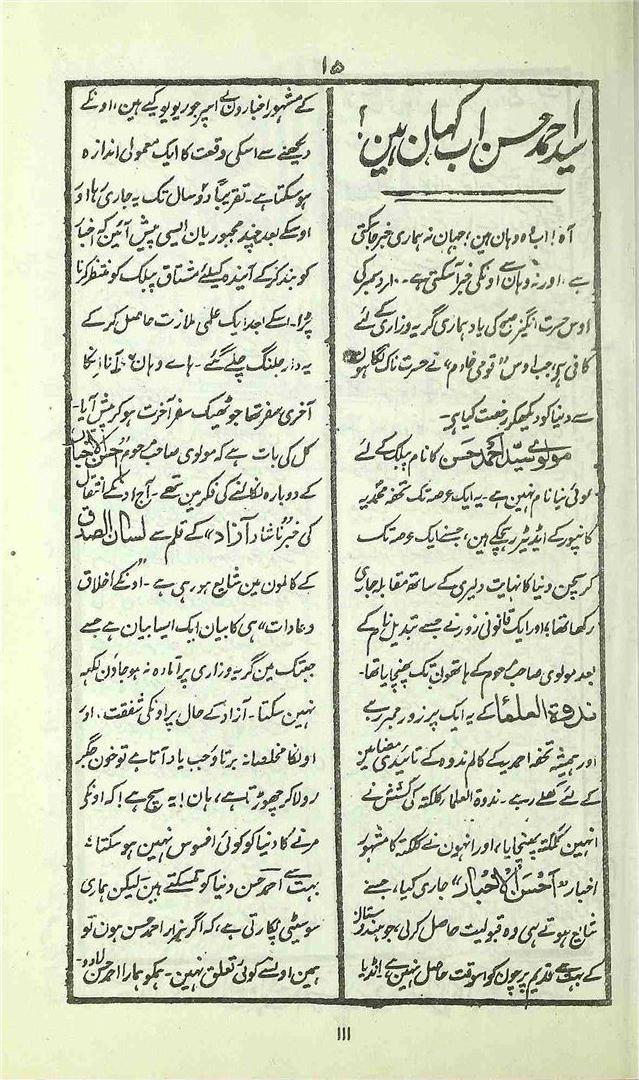 ۱۵
سید احمد حسن اب کہان ہین؟
آہ! اب وہ وہان ہین، جہان نہ ہماری خبر جا سکتی
ہے، اور نہ وہان سے اونکی خبر آ سکتی ہے۔ ۱۰ دسمبر کی
اوس حسرت انگیز صبح کی یاد ہماری گریہ وزاری کے لئے
کافی ہے، جب اوس "قومی خادم" نے حسرت ناک نگاہون
سے دنیا کو دیکھکر رخصت کیا ہی۔
مولوی سید احمد حسن کا نام پبلک کے لئے
کوئی نیا نام نہین ہے۔ یہ ایک عرصہ تک تحفہ محمدیہ
کانپور کے ایڈیٹر رہ چکے ہین، جسنے ایک عرصہ تک
کرسچن دنیا کا نہایت دلیری کے ساتھ مقابلہ جاری
رکھا تھا؛ اور ایک قانونی زور نے جسے تبدیل نام کے
بعد مولوی صاحب مرحوم کے ہاتھون تک پہنچایا تھا۔
ندوۃ العلما کے یہ ایک پر زور ممبر رہے
اور ہمیشہ تحفہ احمدیہ کے کالم ندوہ کے تائیدی مضامین
کے لئے کھلے رہے۔ ندوۃ العلما کلکتہ کی کشش نے
انہین کلکتہ پہنچایا، اور انہون نے کلکتہ کا مشہور
اخبار "احسن الاخبار" جاری کیا، جسنے
شایع ہوتے ہی وہ قبولیت حاصل کرلی، جو ہندوستان
کے بہت سے قدیم پرچون کو اسوقت حاصل نہین ہے، انڈیا
کے مشہور اخبارون نے اسپر جو ریویو کیے ہین، اونکے
دیکھنے سے اسکی وقعت کا ایک معمولی اندازہ
ہو سکتا ہے۔ تقریباً دو سال تک یہ جاری رہا، اور
اوسکے بعد چند مجبوریان ایسی پیش آئین کہ اخبار
کو بند کرکے آیندہ کیلئے مشتاق پبلک کو منتظر کرنا
پڑا۔ اسکے بعد ایک علمی ملازمت حاصل کرکے
یہ دارجلنگ چلے گئے۔ ہاے وہان جانا انکا
آخری سفر تھا جو ٹھیک سفر آخرت ہوکر پیش آیا۔
کل کی بات ہے کہ مولوی صاحب مرحوم "احسن الاخبار"
کے دوبارہ نکالنے کی فکر مین تھے۔ آج اونکے انتقال
کی خبر "ناشاد آزاد" کے قلم سے لسان الصدق
کے کالمون مین شایع ہو رہی ہے۔ اونکے "اخلاق
وعادات" ہی کا بیان ایک ایسا بیان ہے جسے
جبتک مین گریہ وزاری پر آمادہ نہ ہو جاؤن لکھہ
نہین سکتا۔ آزاد کے حال پر اونکی شفقت، اور
اونکا مخلصانہ برتاؤ جب یاد آتا ہے تو خون جگر
رولا کر چھوڑتا ہے، ہان! یہ سچ ہے! کہ اونکے
مرنے کا دنیا کو کوئی افسوس نہین ہو سکتا؛
بہت سے احمد حسن دنیا کو مل سکتے ہین لیکن ہماری
سوسیٹی پکارتی ہے، کہ اگر ہزار احمد حسن ہون تو
ہمین اونسے کوئی تعلق نہین۔ ہمکو ہمارا احمد حسن لادو۔
۱۱۱